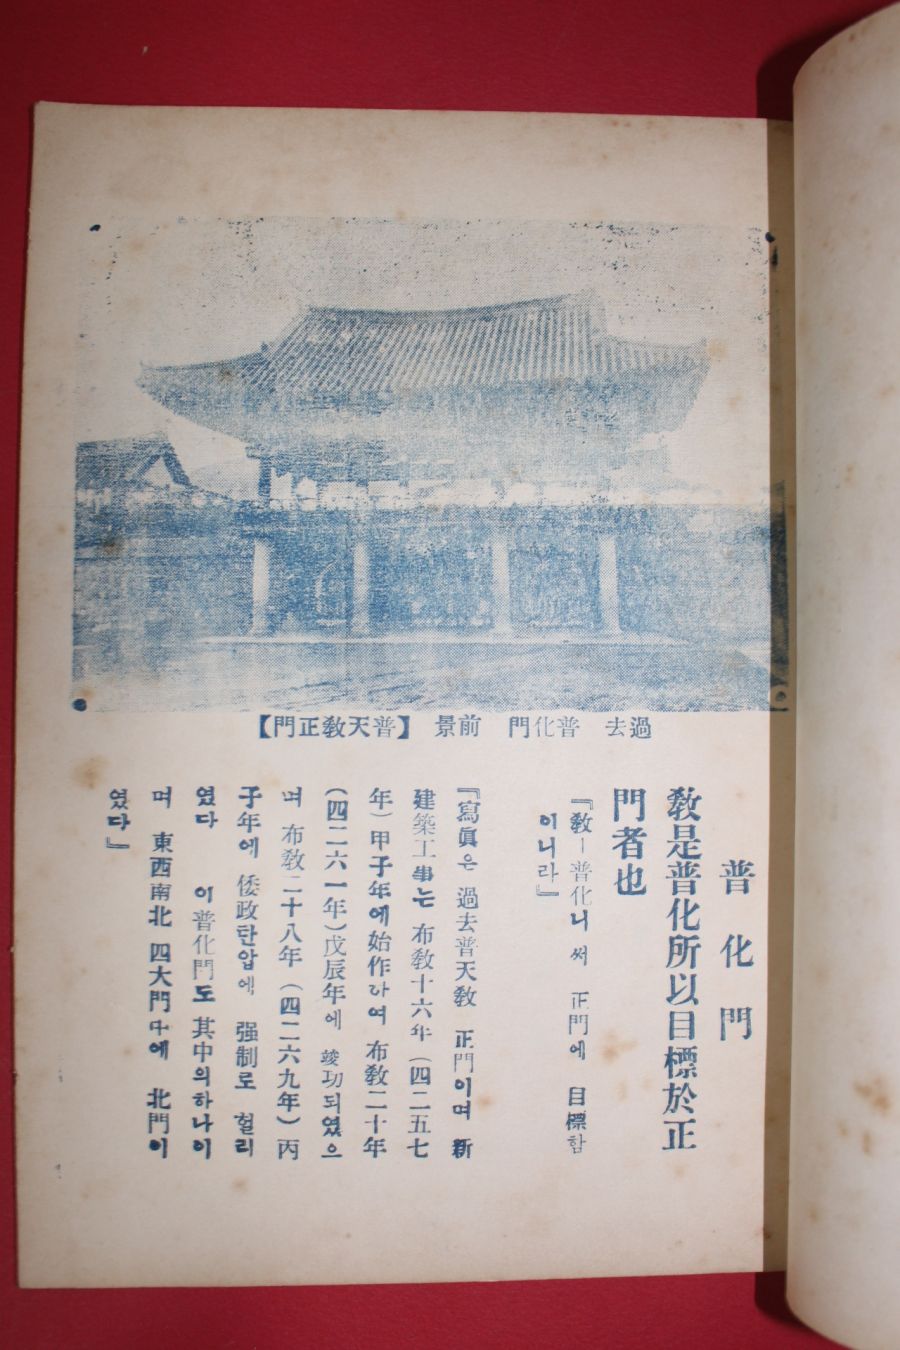 過去 普化門 前景 【普天敎正門】
普化門
敎是普化所以目標於正
門者也
『敎ㅣ普化니 써 正門에 目標함
이니라』
『寫眞은 過去普天敎 正門이며 新
建築工事는 布敎十六年 (四二五七
年) 甲子年에始作하여 布敎二十年
(四二六一年)戊辰年에 竣功되였으
며 布敎二十八年 (四二六九年) 丙
子年에 倭政탄압에 强制로 헐리
였다 이普化門도 其中의하나이
며 東西南北 四大門中에 北門이
였다』